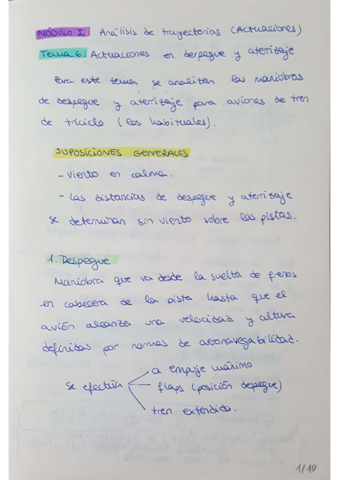 MÓDULO I: Análisis de trayectorias (Actuaciones)
Tema 6: Actuaciones en despegue y aterrizaje
Para este tema se analizan las maniobras
de despegue y aterrizaje para aviones de tren
de triciclo (los habituales).
SUPOSICIONES GENERALES
- Viento en calma.
- Las distancias de despegue y aterrizaje
se determinan sin viento sobre las pistas.
1. Despegue
Maniobra que va desde la suelta de frenos
en cabecera de la pista hasta que el
avión alcanza una velocidad y altura
definidas por normas de aeronavegabilidad.
a empuje máximo
se efectúa flaps (posición despegue)
tren extendido.
1/10